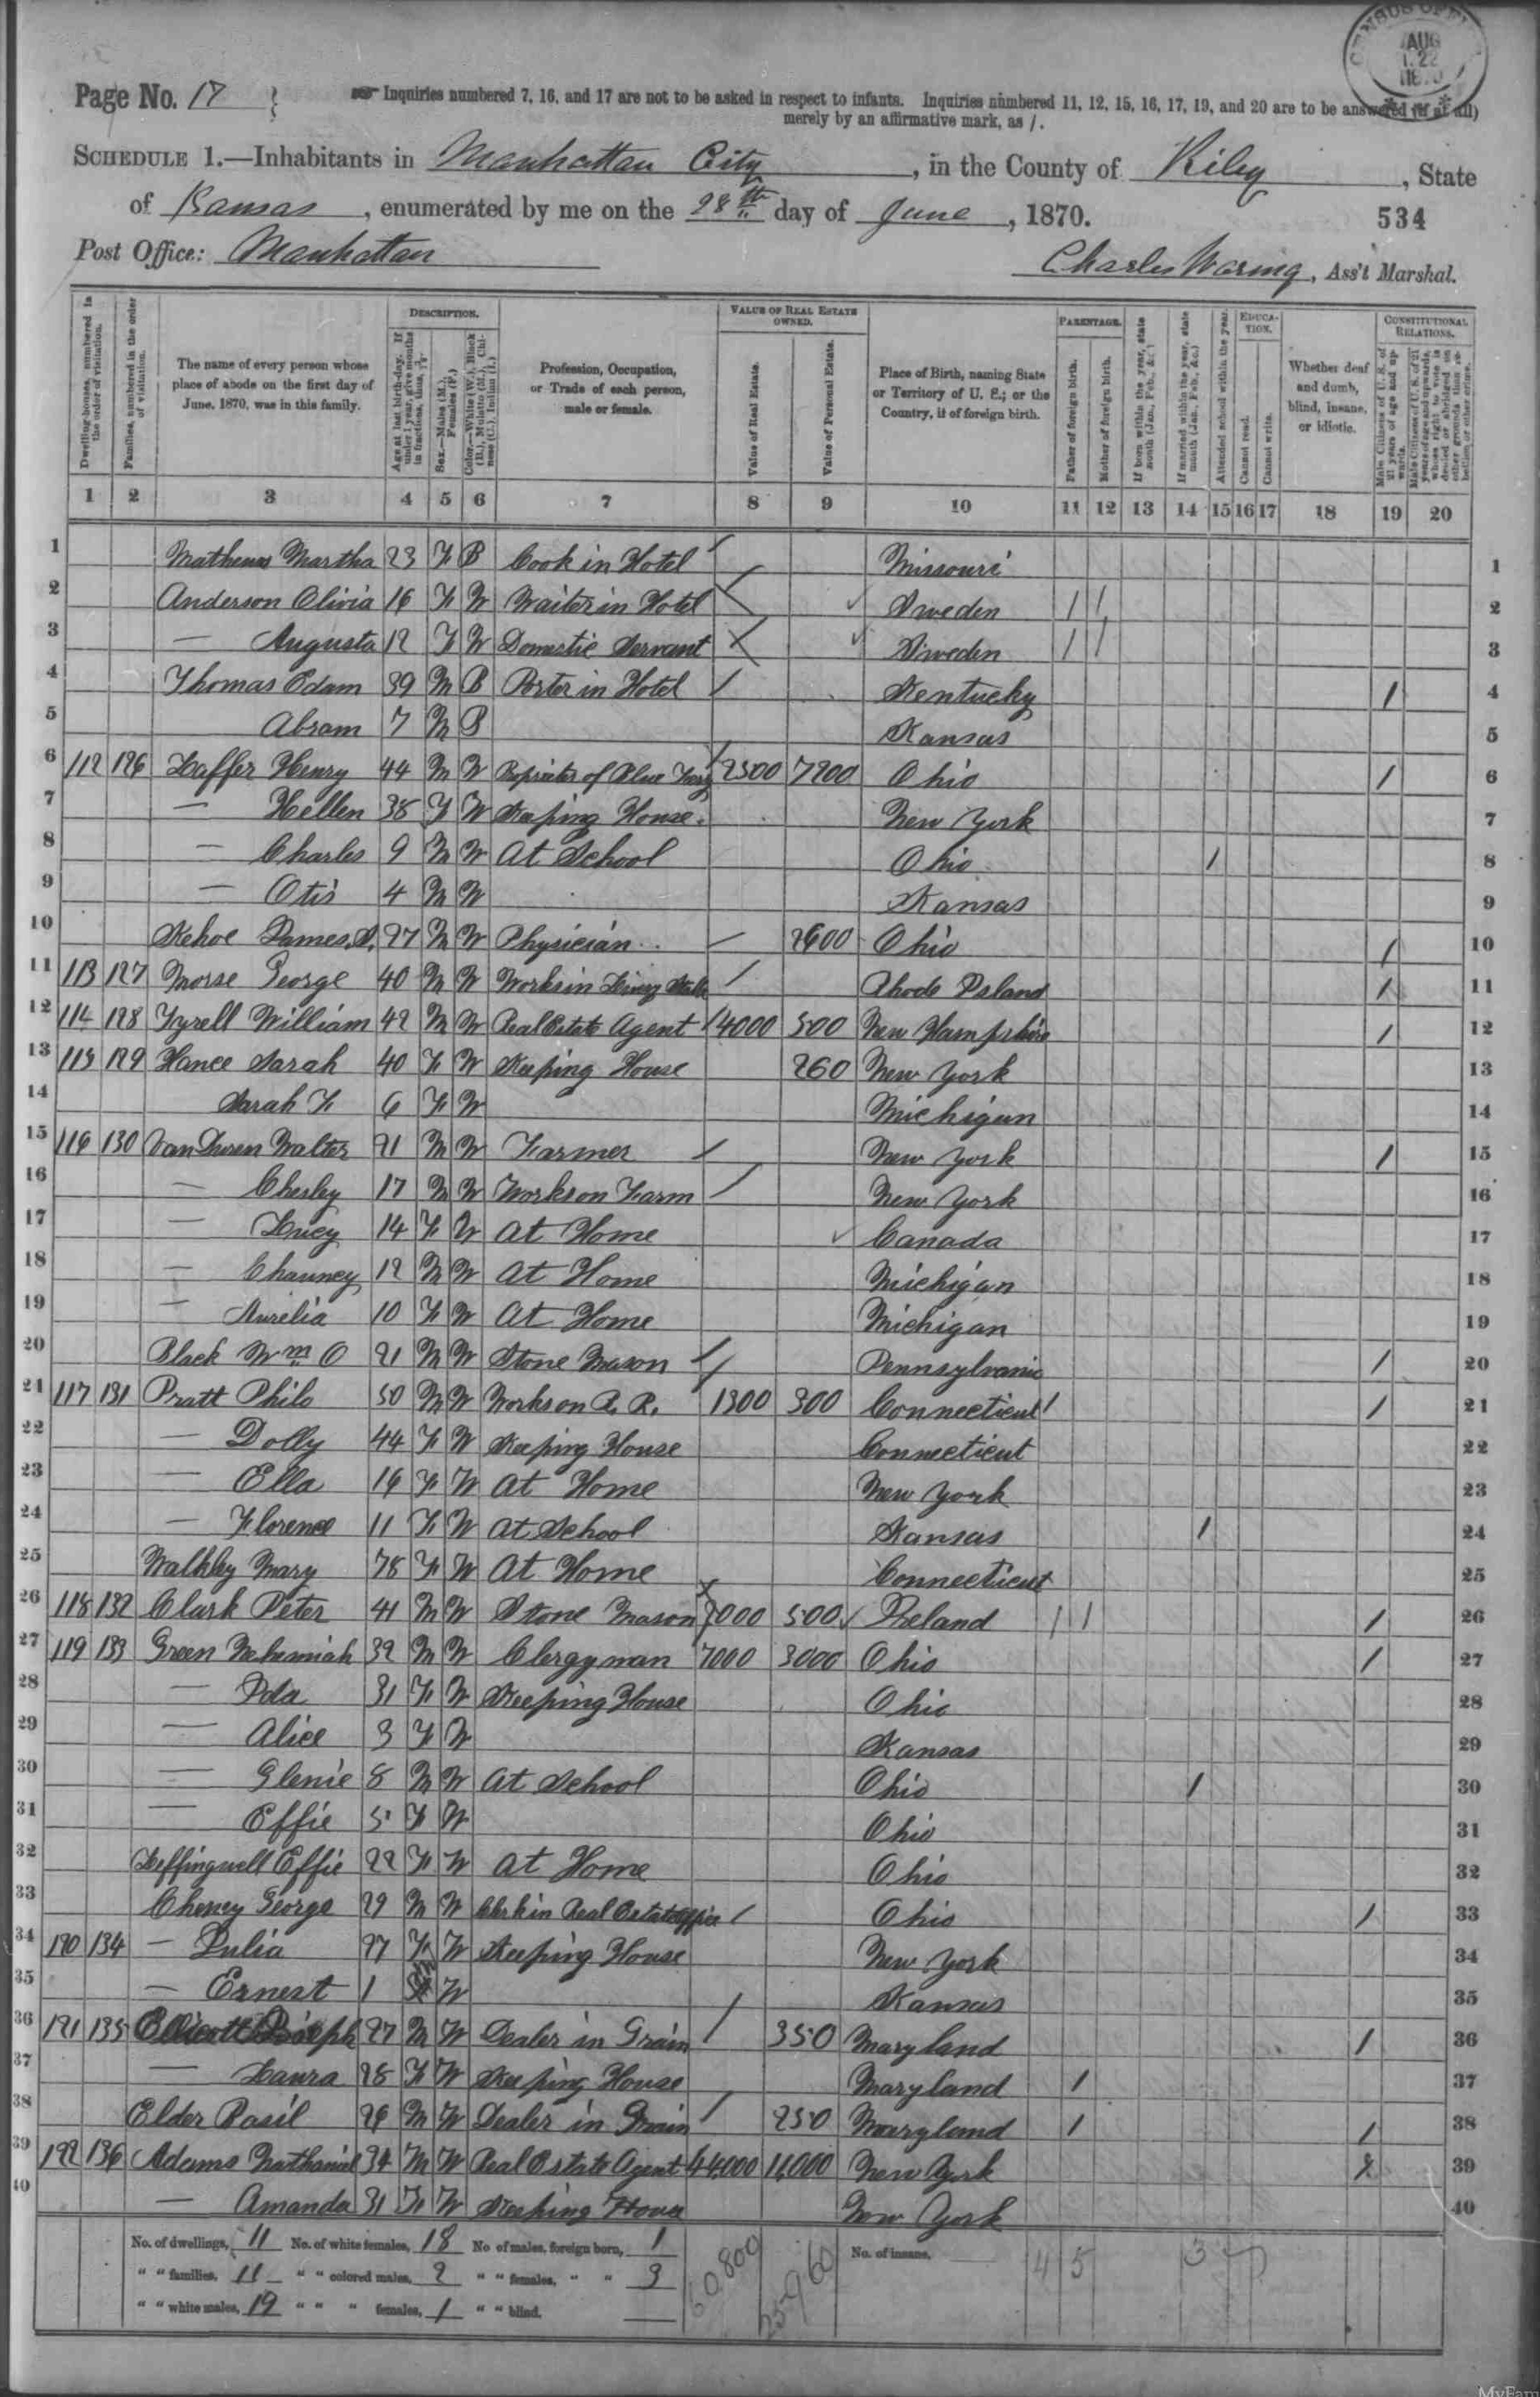 CENSUS OFFICE AUG 22 1870
Page No. 17
Inquiries numbered 7, 16, and 17 are not to be asked in respect to infants. Inquiries numbered 11, 12, 15, 16, 17, 19, and 20 are to be answered (if at all)
merely by an affirmative mark, as /.
SCHEDULE 1.—Inhabitants in Manhattan City, in the County of Riley, State
of Kansas, enumerated by me on the 28th day of June, 1870.
534
Post Office: Manhattan
Charles Waring, Ass't Marshal.
Dwelling-houses, numbered in the order of visitation.
Families, numbered in the order of visitation.
The name of every person whose place of abode on the first day of June, 1870, was in this family.
DESCRIPTION.
Age at last birth-day. If under 1 year, give months in fractions, thus, 3/12.
Sex.—Males (M.), Females (F.)
Color.—White (W.), Black (B.), Mulatto (M.), Chinese (C.), Indian (I.)
Profession, Occupation, or Trade of each person, male or female.
VALUE OF REAL ESTATE OWNED.
Value of Real Estate.
Value of Personal Estate.
Place of Birth, naming State or Territory of U. S.; or the Country, if of foreign birth.
PARENTAGE.
Father of foreign birth.
Mother of foreign birth.
If born within the year, state month (Jan., Feb., &c.)
If married within the year, state month (Jan., Feb., &c.)
Attended school within the year.
EDUCATION.
Cannot read.
Cannot write.
Whether deaf and dumb, blind, insane, or idiotic.
CONSTITUTIONAL RELATIONS.
Male Citizens of U. S. of 21 years of age and upwards.
Male Citizens of U. S. of 21 years of age and upwards, whose right to vote is denied or abridged on other grounds than rebellion or other crime.
1 2 3 4 5 6 7 8 9 10 11 12 13 14 15 16 17 18 19 20
1 Mathews Martha 23 F B Cook in Hotel / Missouri 1
2 Anderson Olivia 16 F W Waiter in Hotel Sweden / / 2
3 — Augusta 12 F W Domestic Servant Sweden / / 3
4 Thomas Odam 39 M B Porter in Hotel / Kentucky / 4
5 Abram 7 M B Kansas 5
6 112 126 Laffer Henry 44 M W Proprietor of Blue Ferry 2500 7200 Ohio / 6
7 — Hellen 38 F W Keeping House New York 7
8 — Charles 9 M W At School Ohio / 8
9 — Otis 4 M W Kansas 9
10 Kehoe James 27 M W Physician 2600 Ohio / 10
11 113 127 Morse George 40 M W Works in Livery Stable / Rhode Island / 11
12 114 128 Tyrell William 42 M W Real Estate Agent 4000 500 New Hampshire / 12
13 115 129 Hance Sarah 40 F W Keeping House 260 New York 13
14 Sarah F 6 F W Michigan 14
15 116 130 VanDusen Walter 21 M W Farmer / New York / 15
16 — Chesley 17 M W Works on Farm / New York 16
17 — Lucy 14 F W At Home Canada 17
18 — Chauncy 12 M W At Home Michigan 18
19 — Aurelia 10 F W At Home Michigan 19
20 Black Wm O 21 M W Stone Mason Pennsylvania / 20
21 117 131 Pratt Philo 50 M W Works on R. R. 1300 300 Connecticut / 21
22 — Dolly 44 F W Keeping House Connecticut 22
23 — Ella 16 F W At Home New York 23
24 — Florence 11 F W At School Kansas / 24
25 Walkley Mary 78 F W At Home Connecticut 25
26 118 132 Clark Peter 41 M W Stone Mason 500 Ireland / / / 26
27 119 133 Green Nehemiah 32 M W Clergyman 7000 3000 Ohio / 27
28 — Ida 31 F W Keeping House Ohio 28
29 — Alice 3 F W Kansas 29
30 — Glenie 8 M W At School Ohio / 30
31 — Effie 5 F W Ohio 31
32 Leffingwell Effie 22 F W At Home Ohio 32
33 Cheney George 29 M W Clerk in Real Estate Office / Ohio / 33
34 120 134 — Julia 27 F W Keeping House New York 34
35 — Ernest 1 W Kansas 35
36 121 135 Ellicott Joseph 27 M W Dealer in Grain / 350 Maryland / 36
37 — Laura 28 F W Keeping House Maryland / 37
38 Elder Basil 26 M W Dealer in Grain / 250 Maryland / / 38
39 122 136 Adams Nathaniel 34 M W Real Estate Agent 44,000 11,000 New York 39
40 — Amanda 31 F W Keeping House New York 40
No. of dwellings, 11 No. of white females, 18 No of males, foreign born, 1 No. of insane,
" " families, 11 " " colored males, 2 " " females, " " 3
" " white males, 19 " " " females, 1 " " blind,
60,800 25960 4 5 3